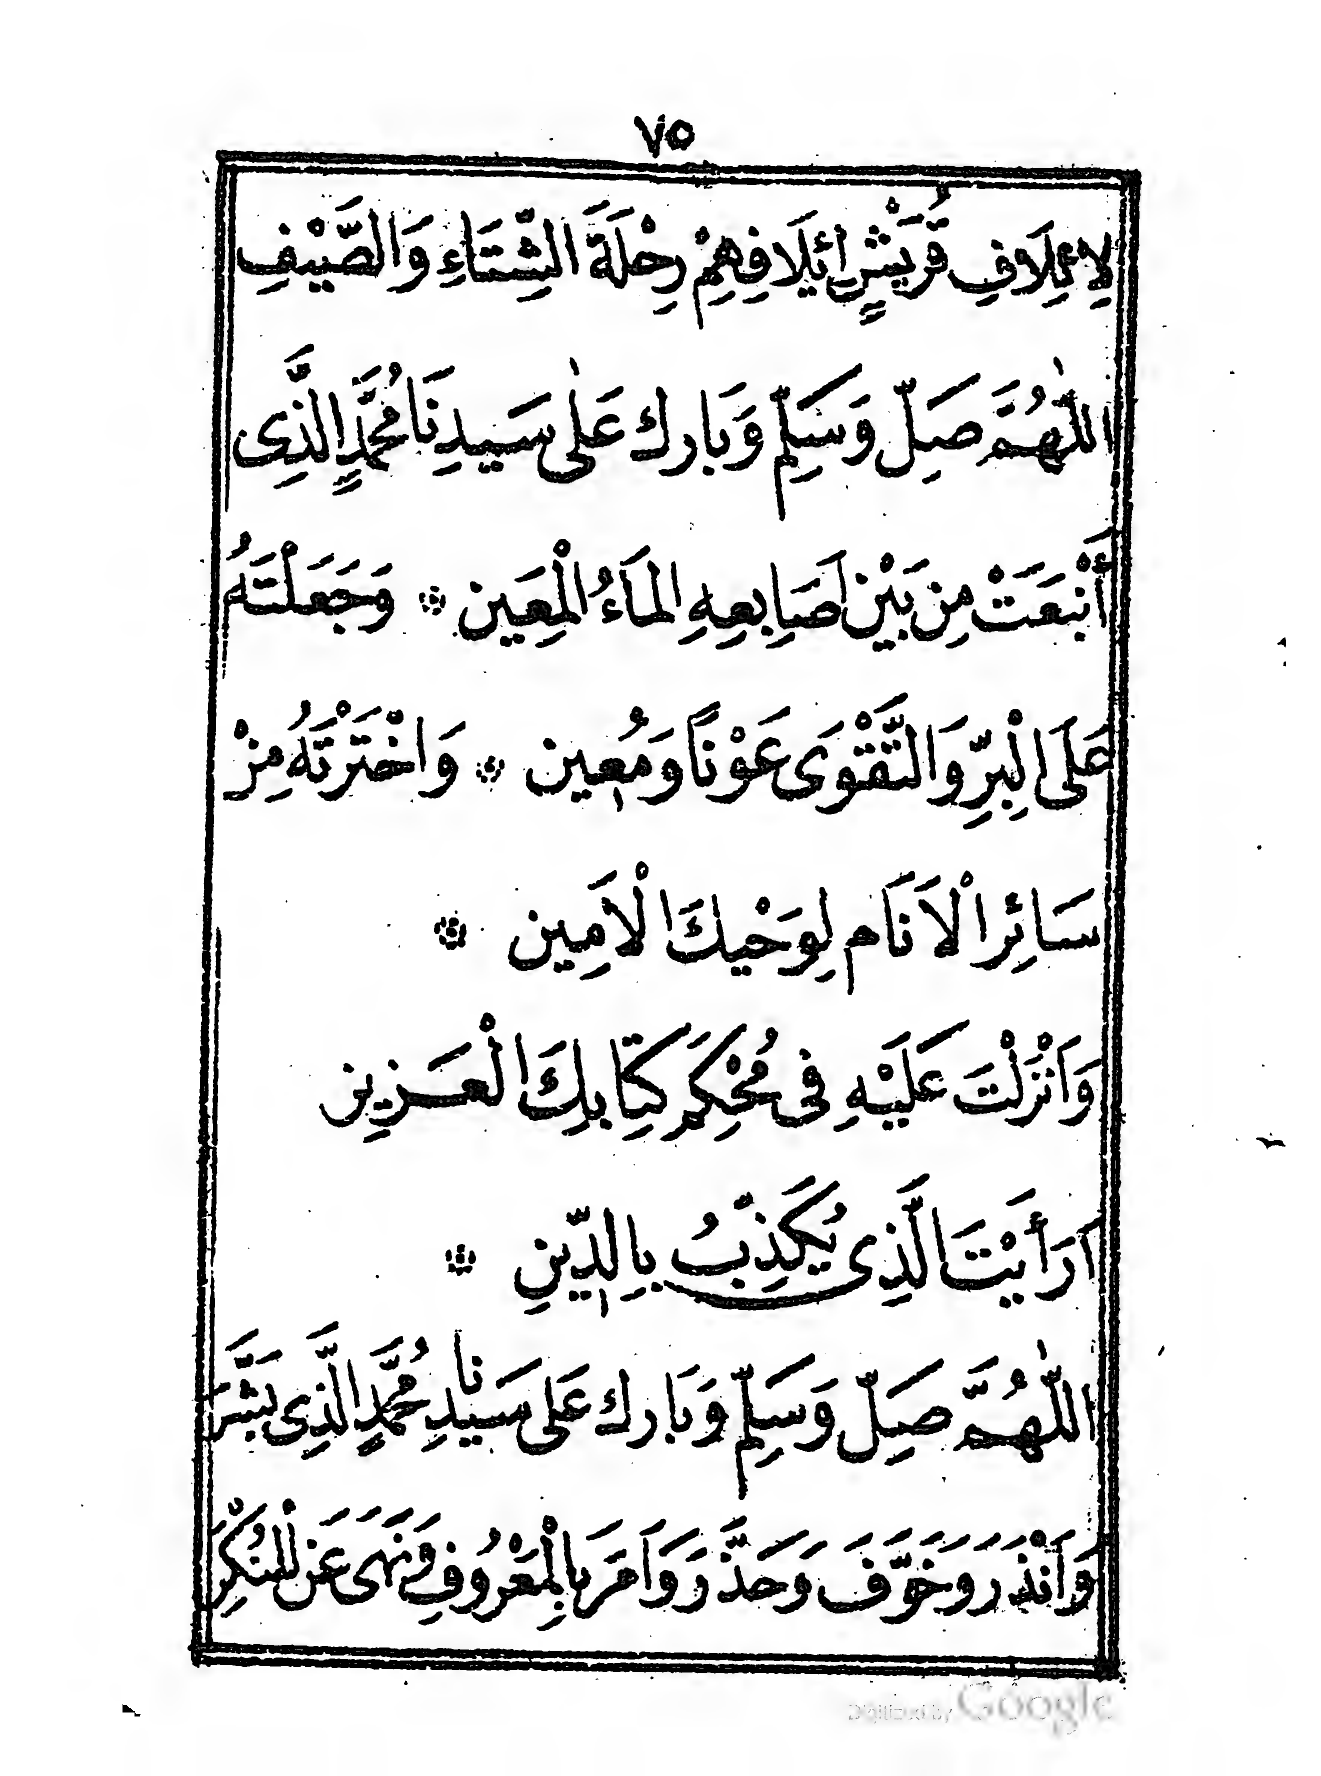 ٧٥
لِاِئِلَافِ قُرَيْشٍ اِئِلَافِهِمْ رِحْلَةَ الشِّتَاءِ وَالصَّيْفِ
اللّٰهُمَّ صَلِّ وَسَلِّم وَبَارِك عَلٰى سَيِدِنَا مُحَمَّدٍ الَّذِى
أَنْبَعَتْ مِن بَيْن اَصَابِعِهِ الْمَاءُ الْمَعِين ۞ وَجَعَلْتَهُ
عَلَى الْبِرِّ وَالتَّقْوَى عَوْنًا وَمُعِين ۞ وَاخْتَرْتَهُ مِنْ
سَائِرِ الْاَنَام لِوَحْيِكَ الْاَمِين ۞
وَاَنْزَلْتَ عَلَيْهِ فِى مُحْكَم كِتَابِكَ الْعَزِيز
اَرَأَيْتَ الَّذِى يُكَذِّبُ بِالدِّينِ ۞
اللّٰهُمَّ صَلِّ وَسَلِّم وَبَارِك عَلَى سَيِدِنَا مُحَمَّدٍ الَّذِى بَشَّرَ
وَاَنْذَرَ وَخَوَّفَ وَحَذَّرَ وَاَمَرَ بِالْمَعْرُوفِ وَنَهَى عَنِ الْمُنْكَرِ
Digitized by Google